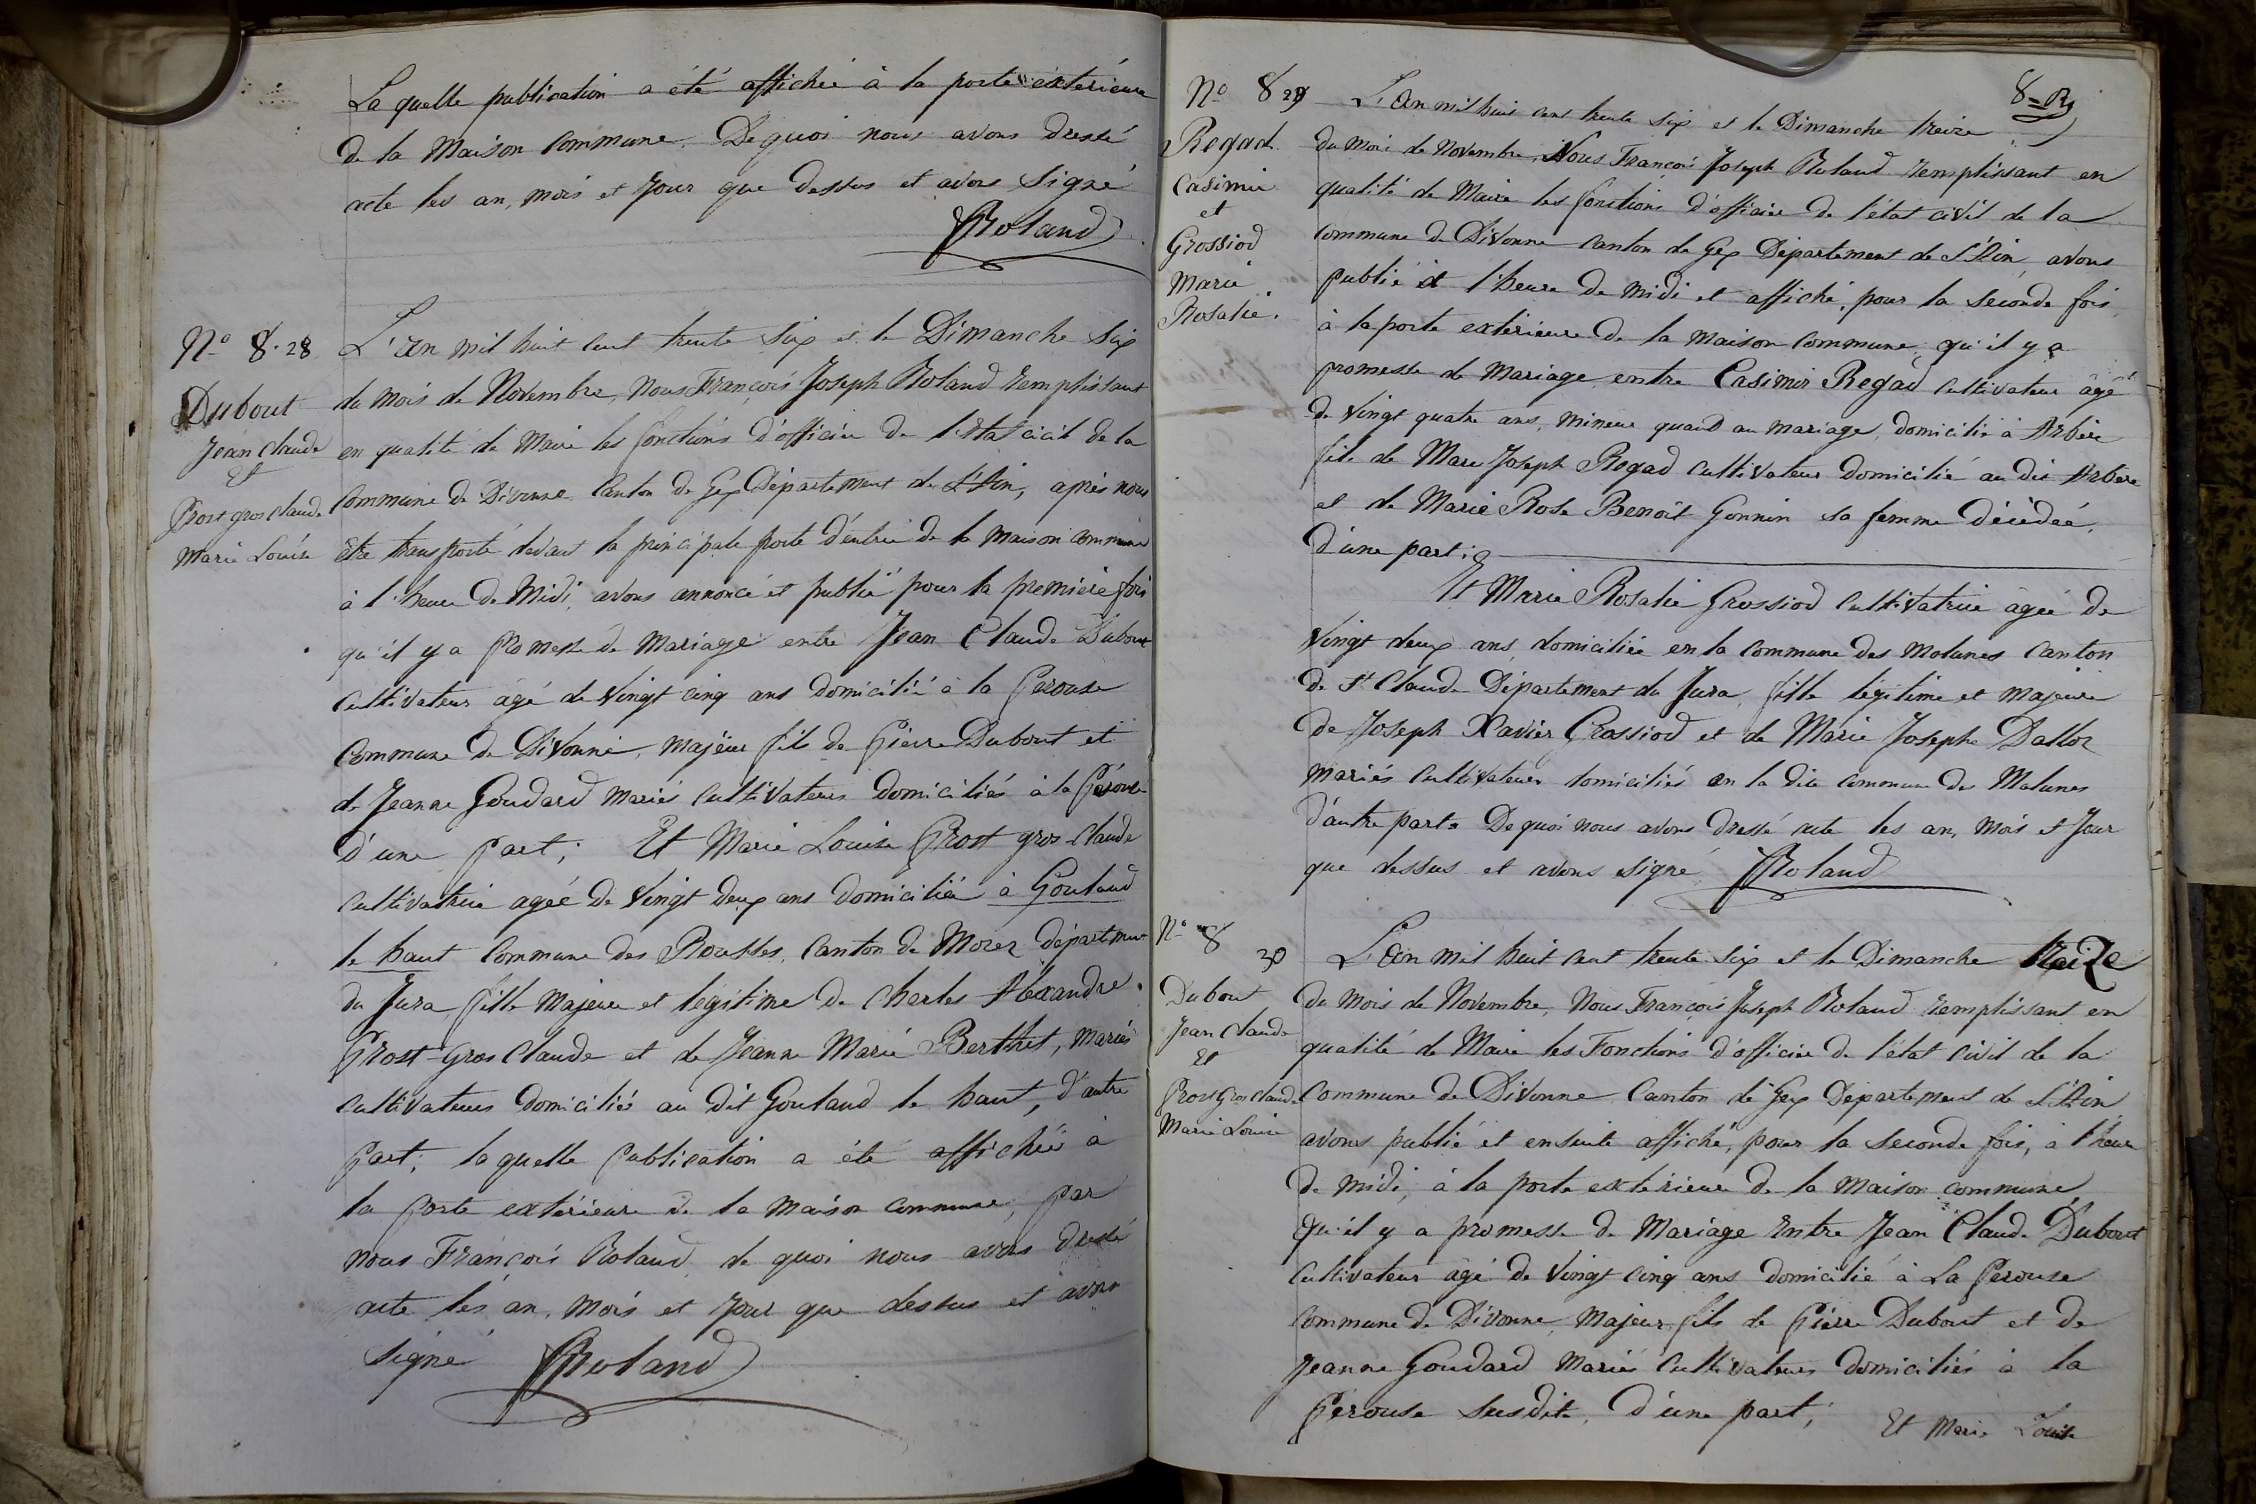 La quelle publication a été affichée à la porte extérieure
de la Maison Commune. De quoi nous avons dressé
acte les an, mois et Jour que dessus et avons Signé
Roland
Nº 8.28
Dubout
Jean Claude
Et
Prost gros Claude
Marie Louise
L'an mil huit cent trente Six et le Dimanche Six
du mois de Novembre, Nous François Joseph Roland remplissant
en qualité de Maire les fonctions d'officier de l'état civil de la
Commune de Divonne Canton de Gex Département de l'Ain, après nous
être transporté devant la principale porte d'entrée de la Maison commune
à l'heure de Midi, avons annoncé et publié pour la première fois
qu'il y a Promesse de Mariage entre Jean Claude Dubout
Cultivateur âgé de Vingt cinq ans domicilié à la Perouse
Commune de Divonne, majeur fils de Pierre Dubout et
de Jeanne Goudard mariés Cultivateurs domiciliés à la Pérouse
d'une Part; Et Marie Louise Prost gros-Claude
Cultivatrice agée de Vingt deux ans domiciliée à Gouland
le haut Commune des Rousses, Canton de Morez département
du Jura fille Majeure et légitime de Charles Alexandre
Prost-Gros Claude et de Jeanne Marie Berthet, mariés
Cultivateurs domiciliés au dit Gouland le haut, d'autre
Part; laquelle Publication a été affichée à
la Porte extérieure de la maison commune, par
nous François Roland, de quoi nous avons dressé
acte les an, mois et jour que dessus et avons
signé Roland
8=R
Nº 8 29
Regad
Casimir
et
Grossiod
Marie
Rosalie.
L'an mil huit cent trente six et le Dimanche treize
du mois de Novembre, Nous François Joseph Roland remplissant en
qualité de Maire les fonctions d'officier de l'état civil de la
Commune de Divonne Canton de Gex Département de l'Ain, avons
publié à l'heure de midi et affiché, pour la seconde fois,
à la porte extérieure de la maison commune, qu'il y a
promesse de mariage entre Casimir Regad Cultivateur âgé
de Vingt quatre ans, mineur quand au mariage, domicilié à Arbère
fils de Marc Joseph Regad Cultivateur domicilié au dit Arbère
et de Marie Rose Benoît Gonnin sa femme décédée,
d'une part;
Et Marie Rosalie Grossiod Cultivatrice agée de
Vingt deux ans domiciliée en la Commune des Molunes Canton
de St Claude Département du Jura, fille légitime et majeure
de Joseph Xavier Grossiod et de Marie Josephe Dalloz
mariés Cultivateurs domiciliés en la dite commune des Molunes
d'autre part. De quoi nous avons dressé acte les an, mois et Jour
que dessus et avons signé Roland
Nº 8
30
Dubout
Jean Claude
Et
Prost Gros Claude
Marie Louise
L'an mil huit cent trente six et le Dimanche treize
du mois de Novembre, Nous François Joseph Roland remplissant en
qualité de Maire les Fonctions d'officier de l'état civil de la
Commune de Divonne Canton de Gex Département de l'Ain
avons publié et ensuite affiché, pour la seconde fois, à l'heure
de midi, à la porte extérieure de la Maison commune,
qu'il y a promesse de Mariage entre Jean Claude Dubout
Cultivateur âgé de Vingt cinq ans domicilié à La Perouse
Commune de Divonne, Majeur, fils de Pierre Dubout et de
Jeanne Goudard Mariés Cultivateurs domiciliés à la
Pérouse Susdite, d'une part; Et Marie Louise